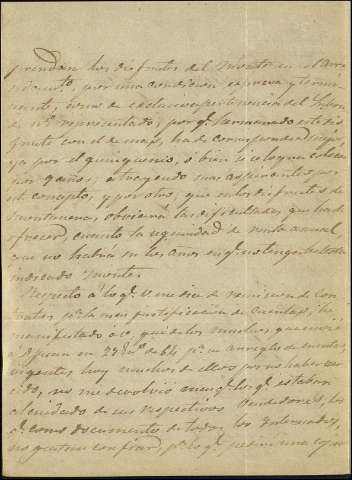 prendan los disfrutes del Monte en el Arren
damto, por una condicion expresa y termi
nante, como de exclusiva pertenencia del
de ntro representado; por qe. hermanado este dis
frute con el de mas, ha de corresponder mejor,
ya por el quinquenio, ó bien si se logra colocar
por 9 años, atrayendo mas aspirantes por
un concepto, y por otro, que en los disfrutes de
montanera, obviaria las dificultades que ha de
ofrecer, cuanto la seguridad de renta anual
que no habria en los años en qe. no tenga bellota
indicado monte.
Respecto á lo qe. V. me dice de remision de con
tratos, pa. la mas justificacion de cuentas, he
manifestado á V. que de los muchos que envié
á en 29 de 64, pa. un arreglo de cuentas,
urgente, hoy muchos de ellos por no haber
no me devolvió mas qe. los qe. estaban
al cuidado de sus respectivos Vendedores, los
qe. como documentos de todos los Interesados,
no gustan confiar, pr. lo qe.